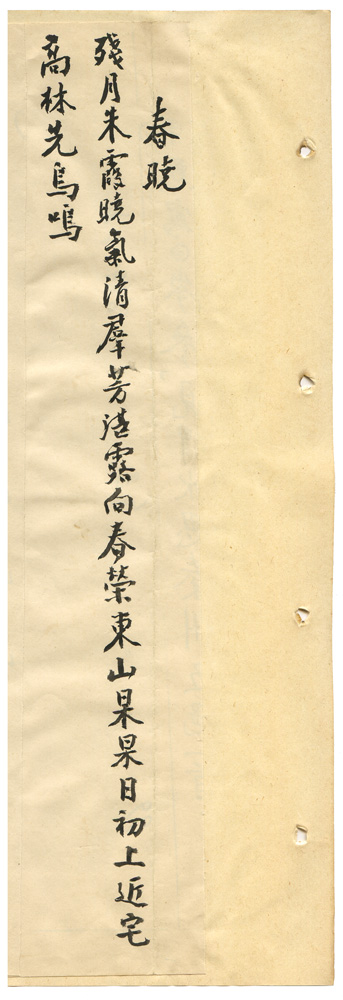 春曉
殘月朱霞曉氣清羣芳湛露向春榮東山杲杲日初上近宅
高林先鳥鳴